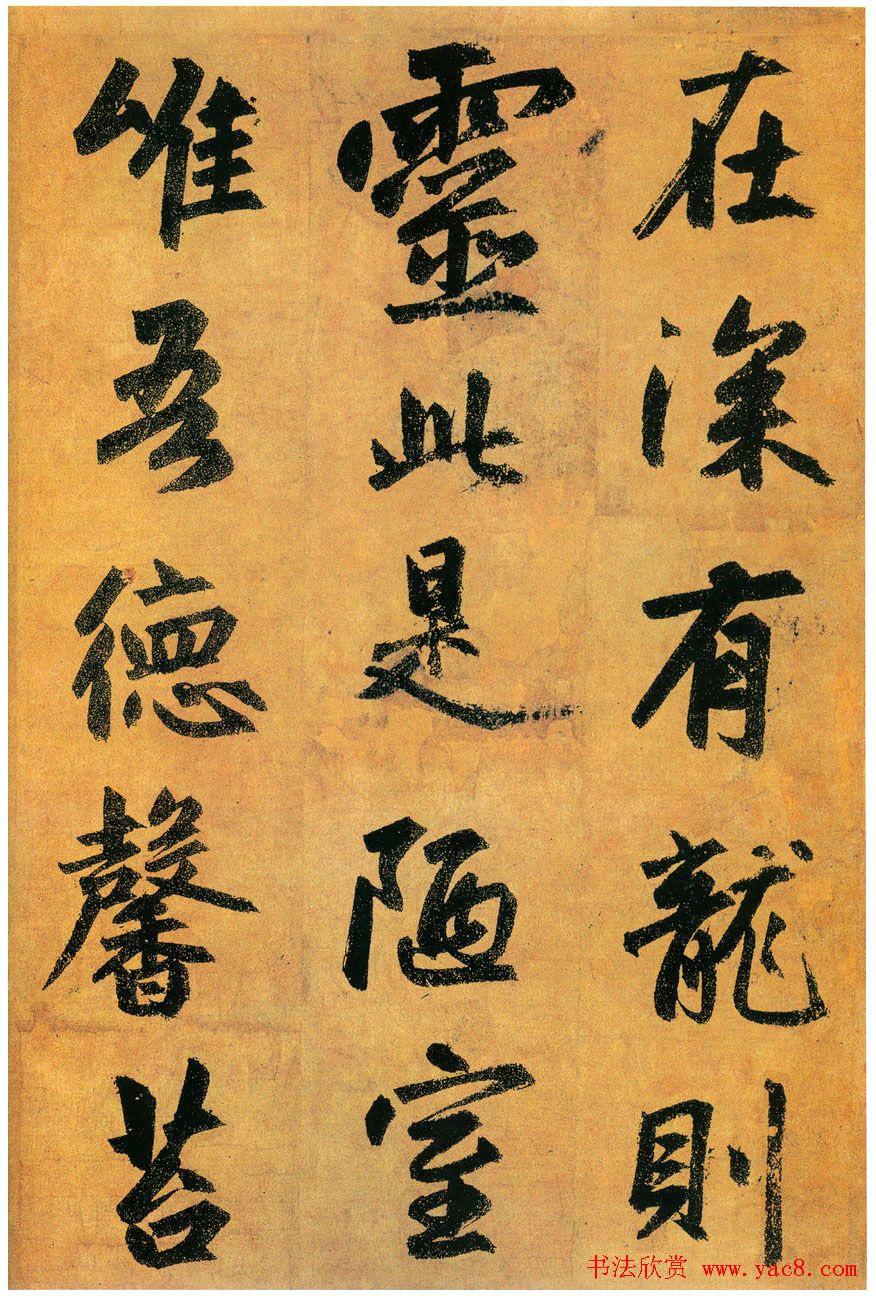 在深有龍則
靈此是陋室
唯吾德馨苔
书法欣赏 www.yac8.com